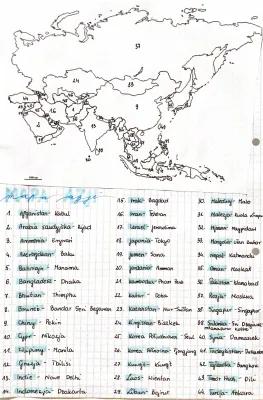 MAPA AZJI
1. Afganistan - Kabul
2. Arabia saudyjska - Rijad
3. Armenia - Erywań
4. Azerbejdżan - Baku
5. Bahrajn - Manama
6. Bangladesz - Dhaka
7. Bhutan - Thimphu
8. Brunei - Bandar Seri Begawan
9. Chiny - Pekin
10. Cypr - Nikozja
11. Filipiny - Manila
12. Gruzja - Tbilisi
13. Indie - Nowe Delhi
14. Indonezja - Dżakarta
15. Irak - Bagdad
16. Iran - Teheran
17. Izrael - Jerozolima
18. Japonia - Tokyo
19. Jemen - Sana
20. Jordania - Amman
21. Kambodża - Phnom Penh
22. Katar - Doha
23. Kazachstan - Nur-Sułtan
24. Kirgistan - Biszkek
25. Korea Południowa - Seul
26. Korea Północna - Pjongjang
27. Kuwejt - Kuwejt
28. Laos - Wientian
29. Liban - Bejrut
30. Malediwy - Male
31. Malezja - Kuala Lumpur
32. Mjanma - Naypyidaw
33. Mongolia - Ułan Bator
34. Nepal - Katmandu
35. Oman - Maskat
36. Pakistan - Islamabad
37. Rosja - Moskwa
38. Singapur - Singapur
40. Syria - Damaszek